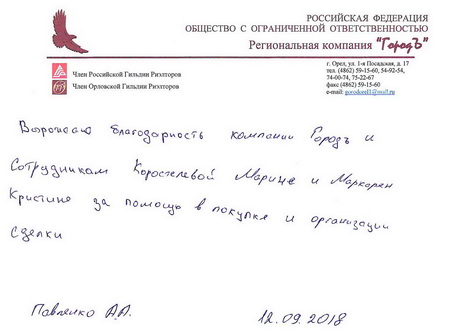 РОССИЙСКАЯ ФЕДЕРАЦИЯ
ОБЩЕСТВО С ОГРАНИЧЕННОЙ ОТВЕТСТВЕННОСТЬЮ
Региональная компания "ГородЪ"
Член Российской Гильдии Риэлторов
Член Орловской Гильдии Риэлторов
г. Орел, ул. 1-я Посадская, д. 17
тел. (4862) 59-15-60, 54-92-54,
74-00-74, 75-22-67
факс (4862) 59-15-60
e-mail: gorodorel1@mail.ru
Выражаю благодарность компании Городъ и
Сотрудникам Коростелевой Марине и Маркарян
Кристине за помощь в покупке и организации
сделки
Павленко А.А.
12.09.2018